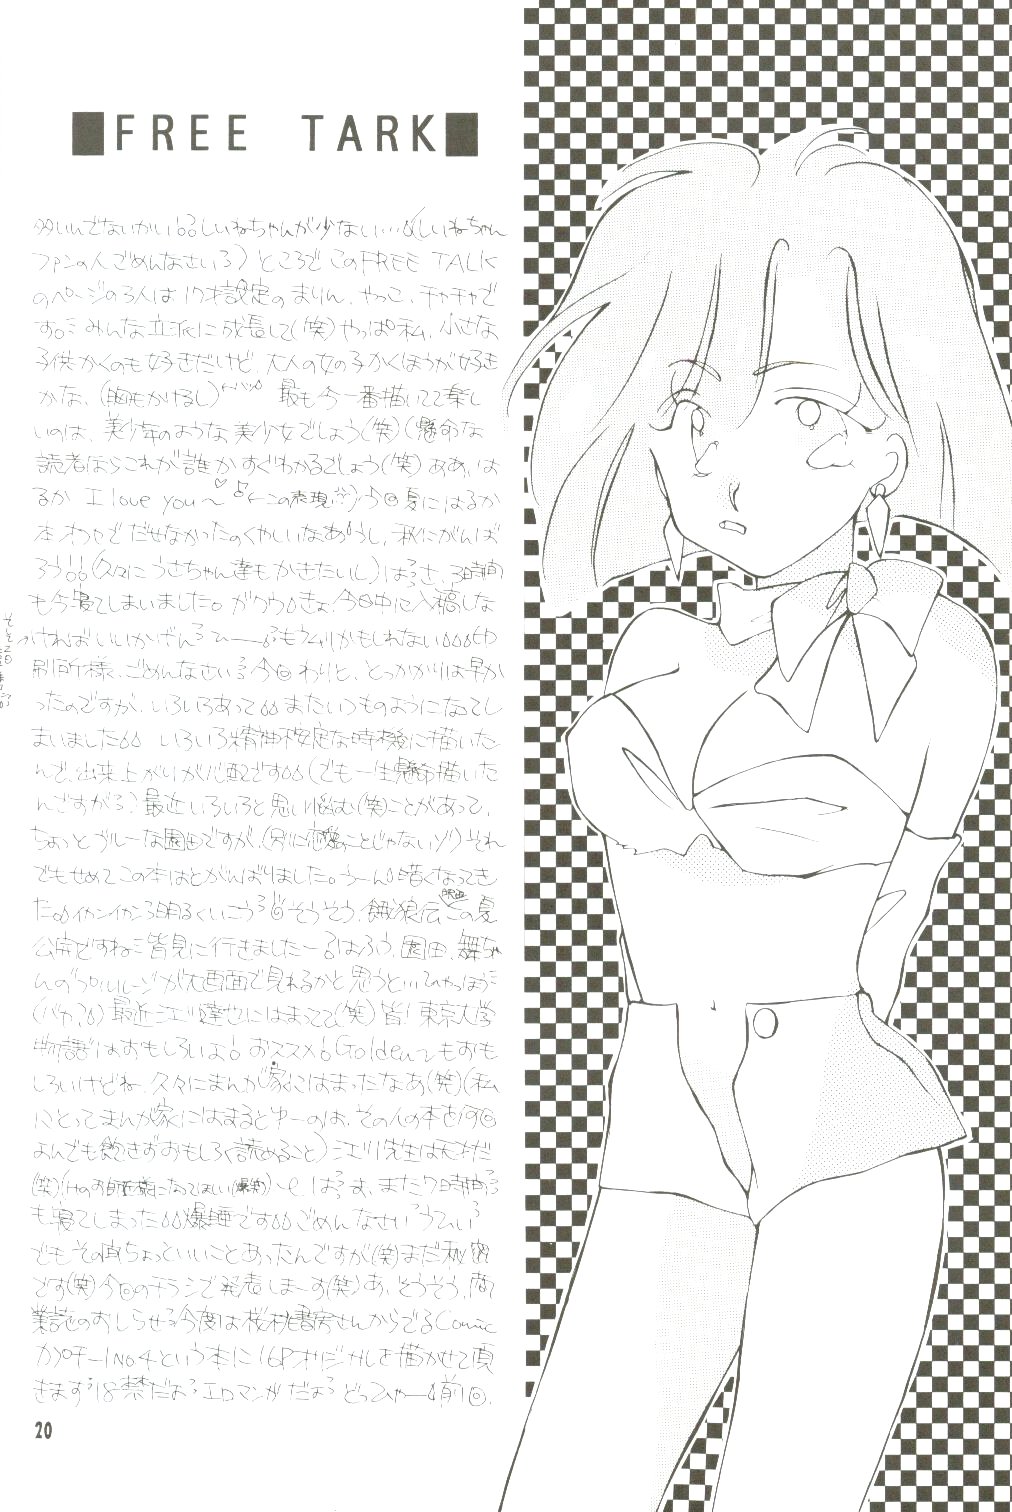 FREE TARK
多いんでないかい!?しいねちゃんが少ない…(しいねちゃん
ファンの人ごめんなさいっ)ところでこのFREE TALK
のページの3人は17才設定のまりん、やっこ、チャチャで
す。みんな立派に成長して(笑)やっぱ私、小さな
子供かくのも好きだけど、大人の女の子かくほうが好き
かな、(胸もかけるし) 最も今一番描いてて楽し
いのは、美少年のような美少女でしょう(笑)(懸命な
読者ならこれが誰かすぐわかるでしょう(笑)ああ、は
るか I love you〜♡♪←この表現 今回夏にはるか
本オフセでだせなかったのくやしいなあ うし、秋にがんば
ろう!!(久々にうさちゃん達もかきたいし)はっさ、3時間
も今寝てしまいました。ガクウ きょ、今日中に入稿しな
ければいいかげん もうムリかもしれない 印
刷所様、ごめんなさいっ今回わりと、とっかかりは早か
ったのですが、いろいろあって またいつものようになってし
まいました いろいろ精神不安定な時機に描いた
んで、出来上がりが心配です(でも一生懸命描いた
んですがっ)最近いろいろと思い悩む(笑)ことがあって、
ちょっとブルーな園田ですが、(別に恋愛ことじゃないゾ)それ
でもせめてこの本はとがんばりました。うーん 暗くなってき
た イカンイカン 明るくいこう そうそう、餓狼伝 映画 この夏
公開ですね 皆見に行きました〜 はふう、園田、舞ちゃ
んの が大画面で見れるかと思うと…ひゃっほう
(バカ)最近江川達也にはまってて(笑)皆!東京大学
物語はおもしろいよ! おススメ!Goldenもおも
しろいけどね、久々にまんが家にはまったなあ(笑)(私
にとってまんが家にはまるとゆーのは、その人の本を何回
よんでも飽きずおもしろく読めること)江川先生は天才だ
(笑)( になってほしい(爆笑)〜 はっ ま、また7時間
も寝てしまった 爆睡です ごめんなさい うてい
でもその直ちょっといいことあったんですが(笑)まだ秘密
です(笑)今回のチラシで発表しま〜す(笑)あ、そうそう、商
業誌のおしらせっ今度は桜桃書房さんからでるComic
カプチーノNo4という本に16Pオリジナルを描かせて頂
きます 18禁だよっエロマンガだよっ どっひゃー 前回、
20